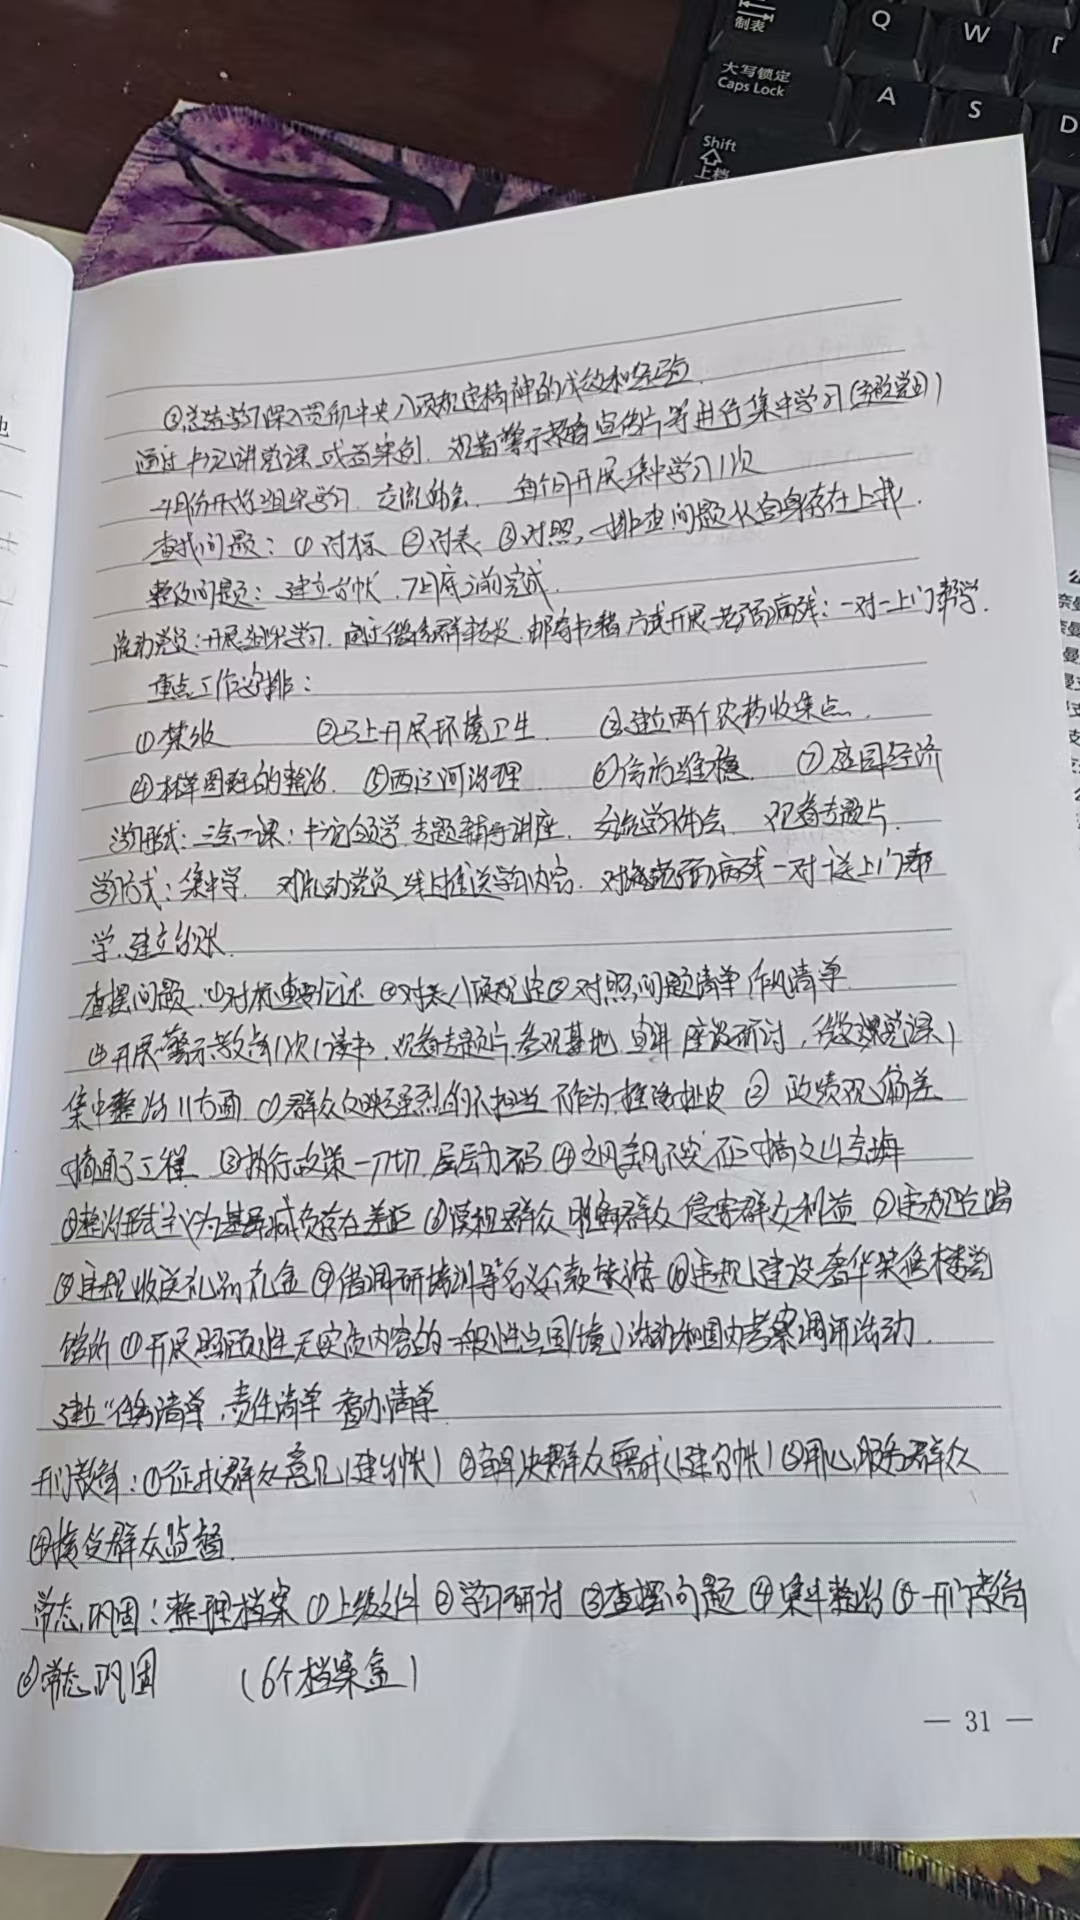 制表
Q
W
大写锁定
Caps Lock
A
S
D
Shift
上档
③总结学习深入贯彻中央八项规定精神的成效和经验
通过书记讲党课 或者案例、观看警示教育宣传片等进行集中学习(主题党日)
4月份开始组织学习、交流 每个月开展集中学习1次
查找问题：①对标 ②对表 ③对照，一排查问题从自身存在上找.
整改问题：建立台帐，7月底之前完成.
流动党员：开展组织学习，通过微信群转发，邮寄书籍方式开展 老弱病残：一对一上门帮学.
重点工作安排：
①禁牧 ②马上开展环境卫生 ③建立两个农药收集点
④林草图斑的整治 ⑤西辽河治理 ⑥信访维稳 ⑦庭园经济
学习形式：三会一课：书记领学 专题辅导讲座 交流学习体会 观看专题片
学习方式：集中学 对流动党员线上推送学习内容 对老弱病残一对一送上门帮
学、建立台账
查摆问题 ①对标重要论述 ②对表八项规定 ③对照问题清单 作风清单
④开展警示教育1次(读书、观看专题片、参观基地 宣讲 座谈研讨，微党课)
集中整治 11方面 ①群众反映强烈的不担当 不作为 推诿扯皮 ② 政绩观偏差
搞面子工程 ③执行政策一刀切 层层加码 ④文风会风不实不正 搞文山会海
⑤整治形式主义为基层减负存在差距 ⑥漠视群众 侵害群众利益 ⑦违规吃喝
⑧违规收送礼品礼金 ⑨借调研培训等名义公款旅游 ⑩违规建设奢华装修楼堂
馆所 ⑪开展照顾性无实质内容的一般性出国(境)活动和国内考察调研活动
建立"任务清单、责任清单 查办清单
开门教育：①征求群众意见(建台帐) ②解决群众需求(建台帐) ③用心服务群众
④接受群众监督
常态巩固：整理档案 ①上级文件 ②学习研讨 ③查摆问题 ④集中整治 ⑤开门教育
⑥常态巩固 (6个档案盒)
— 31 —